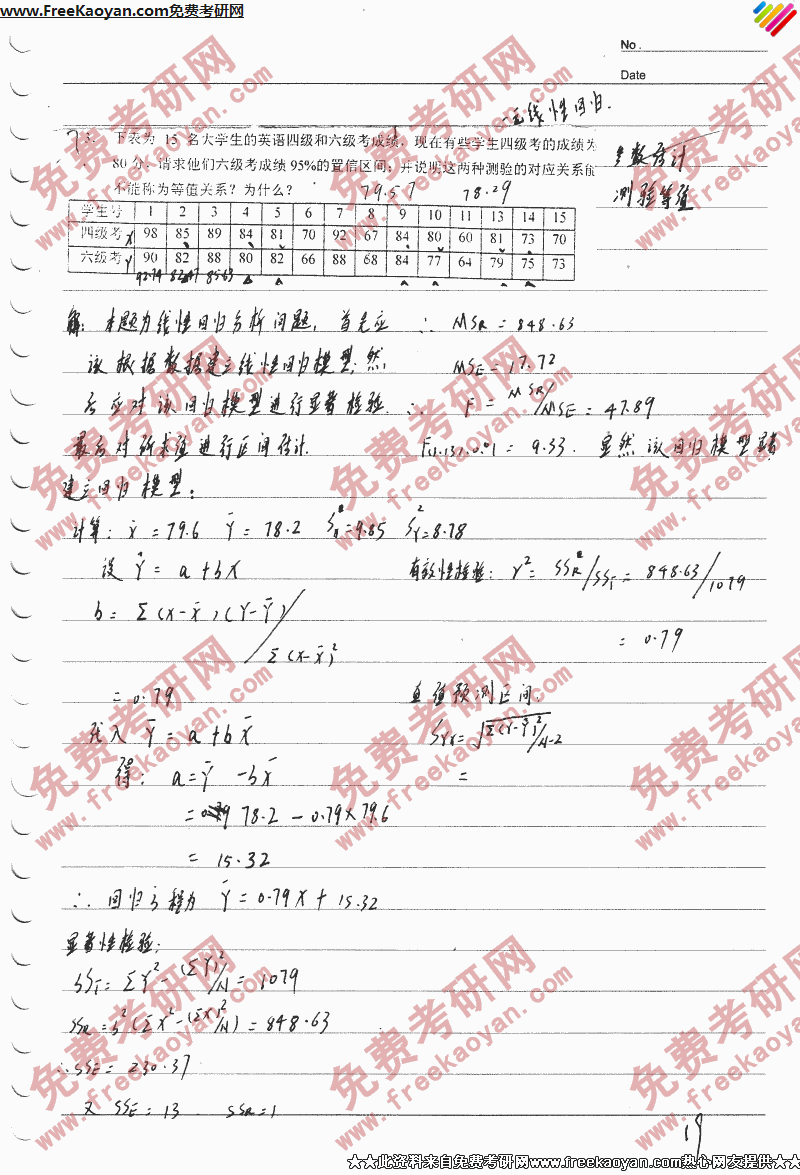 www.FreeKaoyan.com免费考研网
No.
Date
一元线性回归
73. 下表为 15 名大学生的英语四级和六级考成绩，现在有些学生四级考的成绩为
80 分，请求他们六级考成绩 95%的置信区间；并说明这两种测验的对应关系能
不能称为等值关系？为什么？ 79.57 78.29
参数估计
测验等值
学生号 1 2 3 4 5 6 7 8 9 10 11 12 13 14 15
四级考 X 98 85 89 84 81 70 92 67 84 80 60 81 73 70
六级考 Y 90 82 88 80 82 66 88 68 84 77 64 79 75 73
92.74 82.47 85.63
解：本题为线性回归分析问题，首先应
该根据数据建立线性回归模型，然
后应对该回归模型进行显著检验.
最后对所求值进行区间估计.
建立回归模型：
计算：x̄ = 79.6 Ȳ = 78.2 Sx = 9.85 SY = 8.78
设 Ŷ = a + bX
b = Σ(X-X̄)(Y-Ȳ)/Σ(X-X̄)²
= 0.79
代入 Ȳ = a + bX̄
得：a = Ȳ - bX̄
= 78.2 - 0.79×79.6
= 15.32
∴ 回归方程为 Ȳ = 0.79X + 15.32
显著性检验：
SST = ΣY² - (ΣY)²/N = 1079
SSR = b²(ΣX² - (ΣX)²/N) = 848.63
∴ SSE = 230.37
又 SSE = 13 SSR = 1
∴ MSR = 848.63
MSE = 17.72
∴ F = MSR/MSE = 47.89
F(1,13),0.01 = 9.33. 显然该回归模型显著
有效性检验：r² = SSR/SST = 848.63/1079
= 0.79
真值预测区间：
SYX = √Σ(Y-Ŷ)²/N-2
=
19
★★此资料来自免费考研网www.freekaoyan.com热心网友提供★★
免费考研网
www.freekaoyan.com